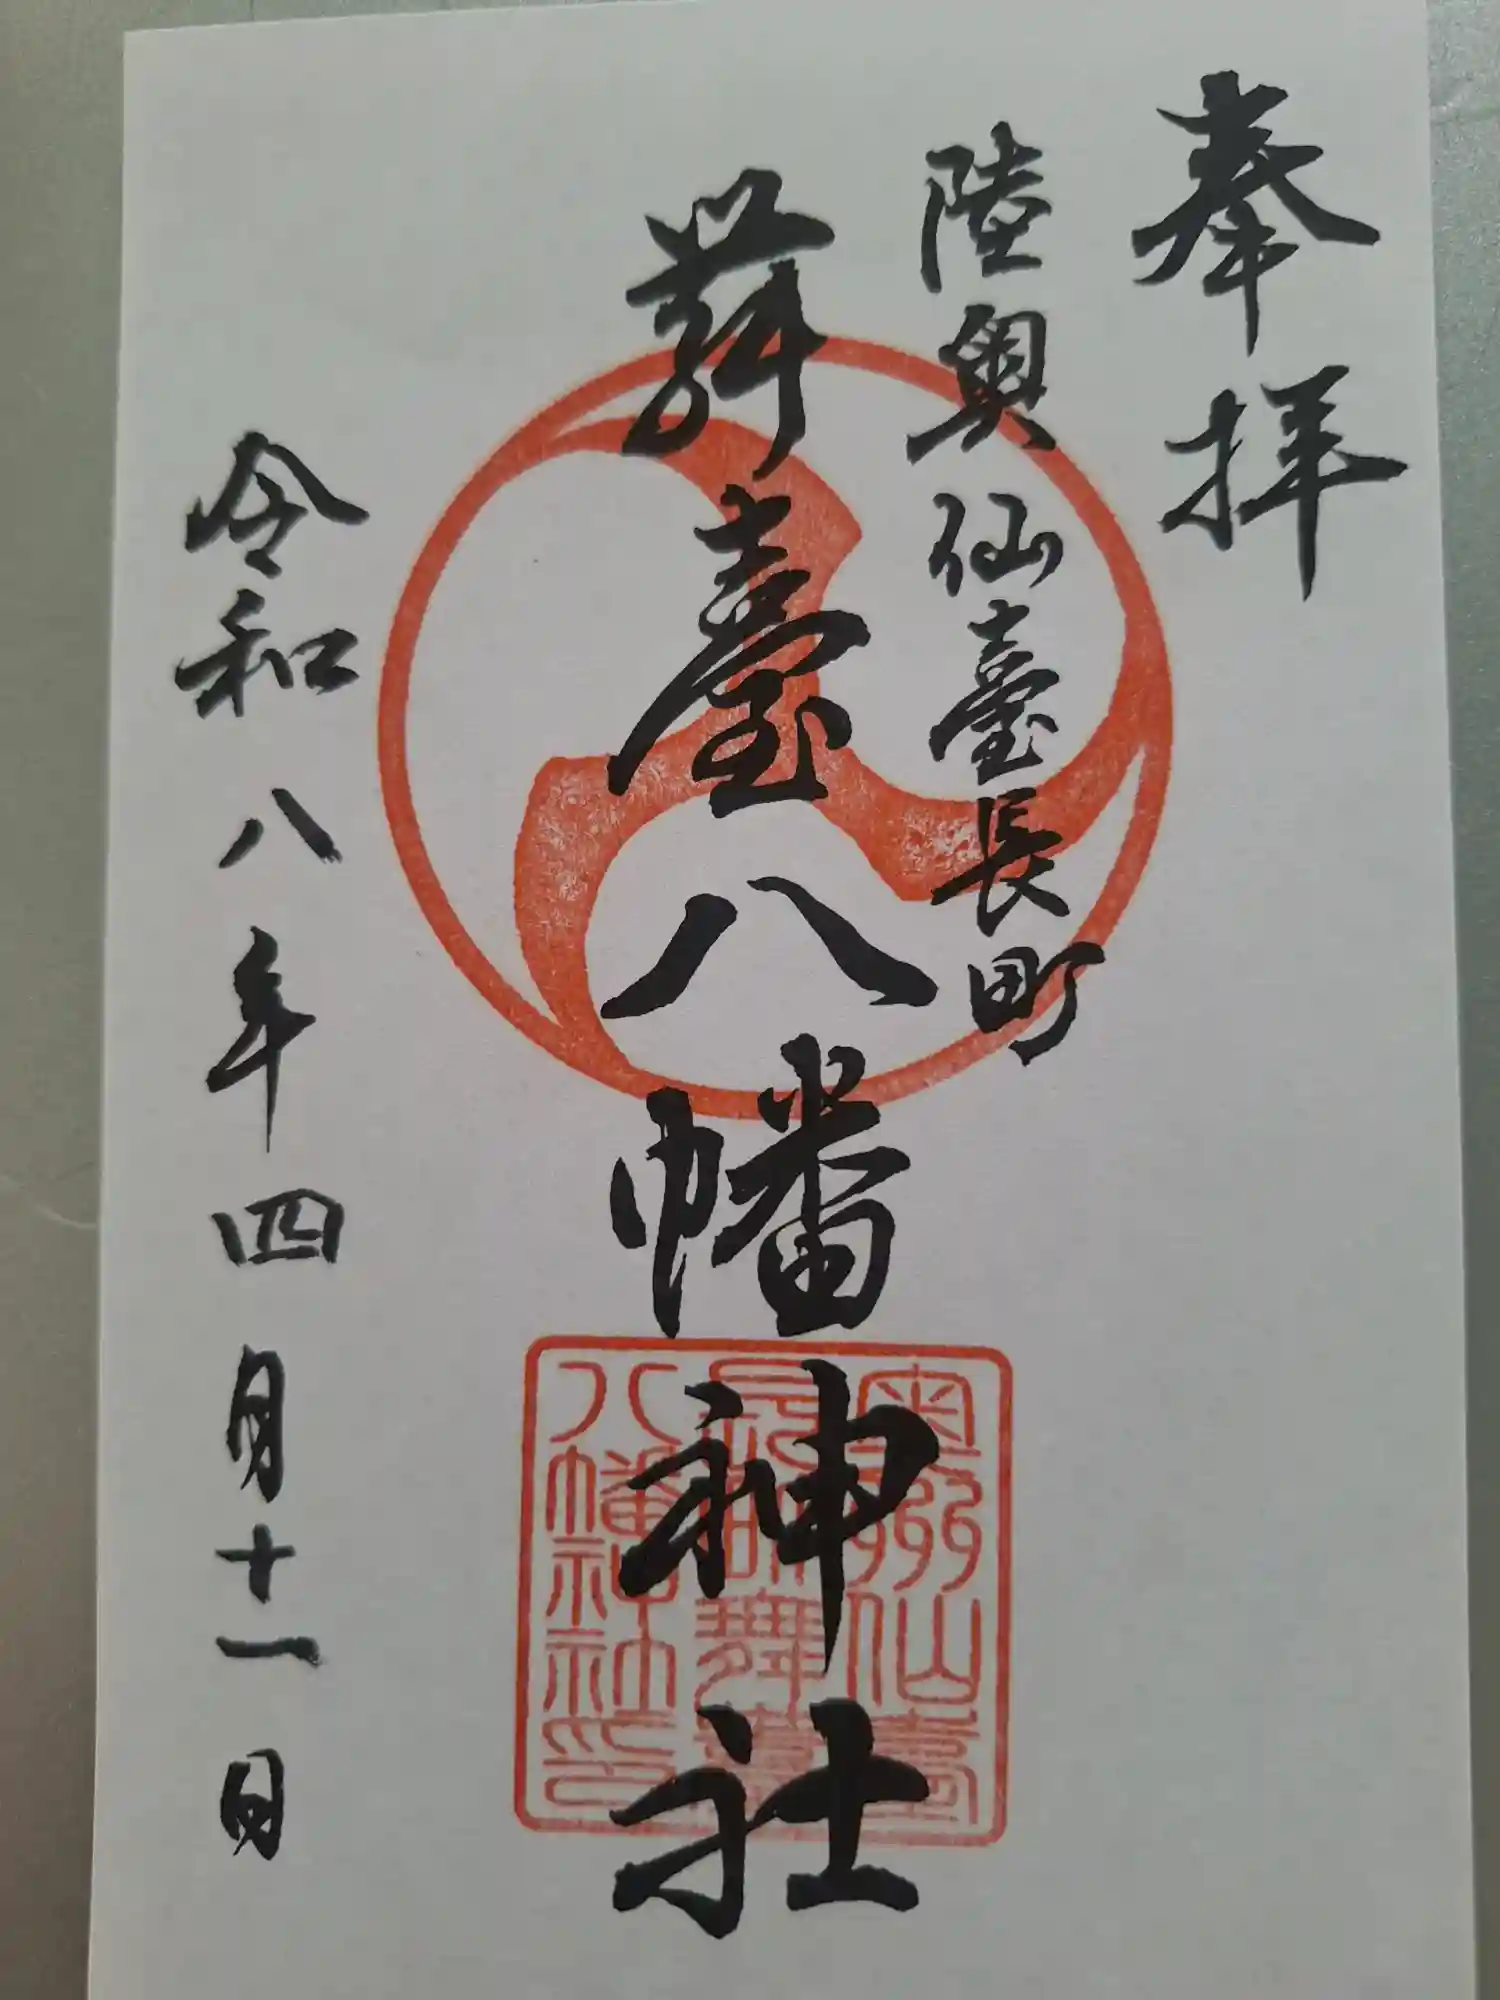 奉拝
陸奥仙臺長町
舞臺八幡神社
令和八年四月十一日
奥州仙臺
長町舞臺
八幡神社印